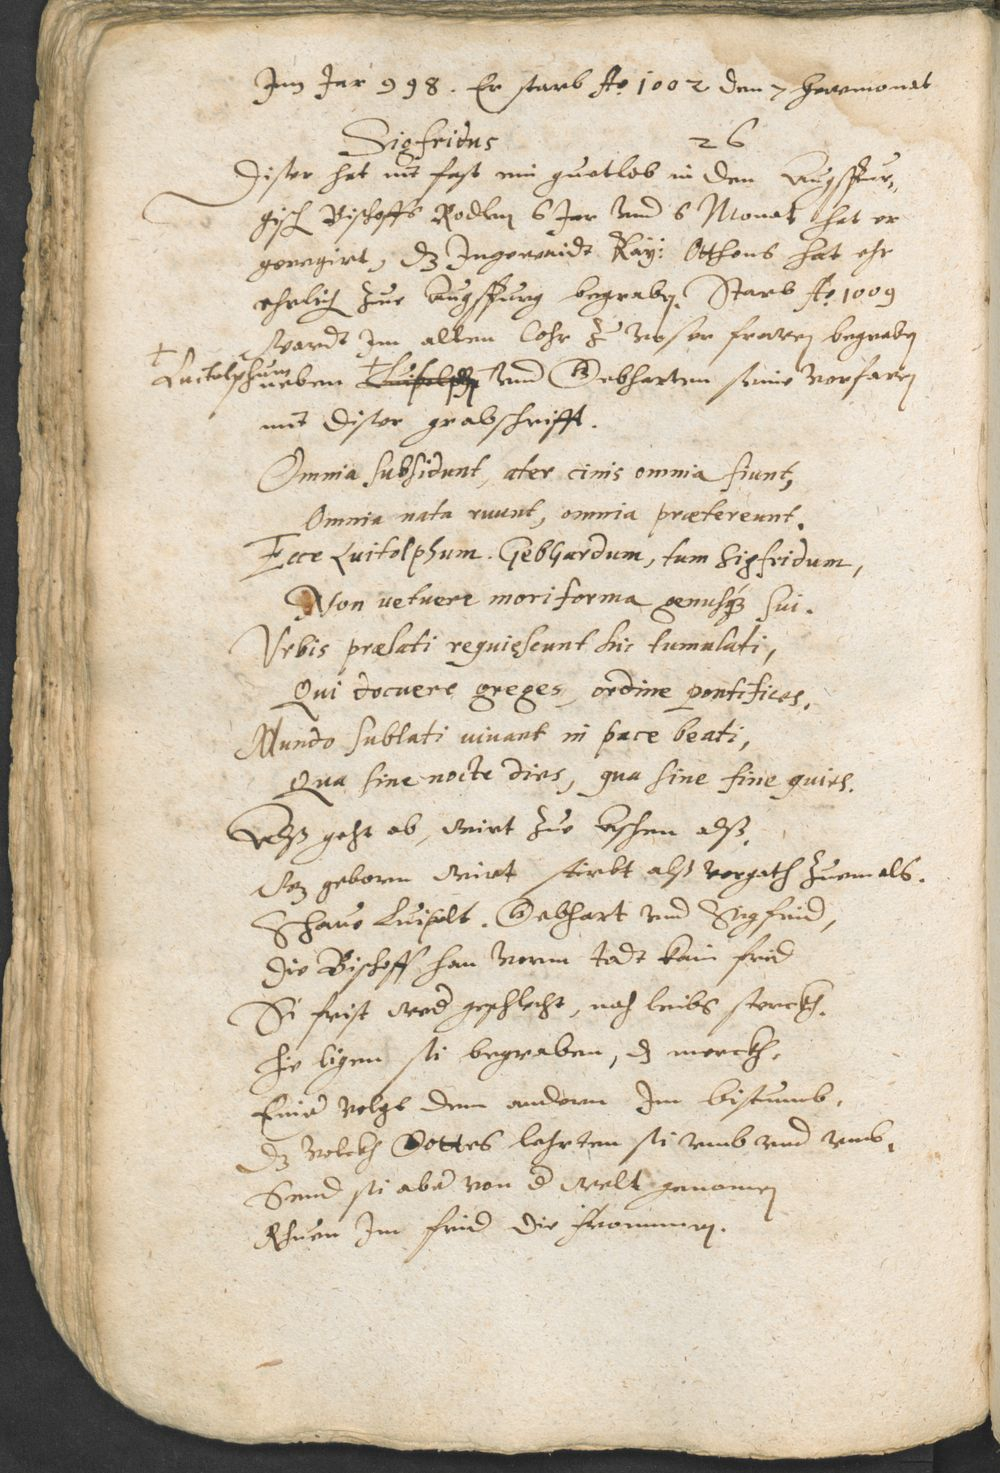 Im Jar 998. Er starb Aō 1002 den 7 Hewmonat
Sigfridus 26
Diser hat nit fast ein guet lob in den Augspur,
gisch Bischoffs Rodlen 6 Jar vnd 6 Monat hat er
geregirt, dz Ingeweidt Kay: Otthons hat ehr
ehrlich zue Augspurg begraben. Starb Aō 1009
Wardt Im alten Cohr zu vnser frawen begraben
† Luitolphum neben † vnd Gebharten seine vorfaren
mit diser grabschrifft.
Omnia subsidunt, ater cinis omnia fiunt,
Omnia nata ruunt, omnia prætereunt.
Ecce Luitolphum. Gebhardum, tum Sigfridum,
Non vetuere mori forma genusq́ꝫ sui.
Vrbis prælati requiescunt hic tumulati,
Qui docuere greges, ordine pontifices.
Mundo sublati vivant in pace beati,
Qua sine nocte dies, qua sine fine quies.
Alß geht ab, wirt zue Aschen alß,
Wz geborn wirt stirbt alß vergath zuemals.
Schawe Luipolt. Gebhart vnd Sigfrid,
die Bischoff han vorm todt kain frid
Si frist wed geschlecht, noch leibs sterckh.
Hie ligen sie begraben, dz merckh.
Einer volgt dem andern Im bistumb,
Dz volckh Gottes lehrten sie vmb vnd vmb.
Send sie aber von d welt genomen
Rhuen Im frid die frommen.